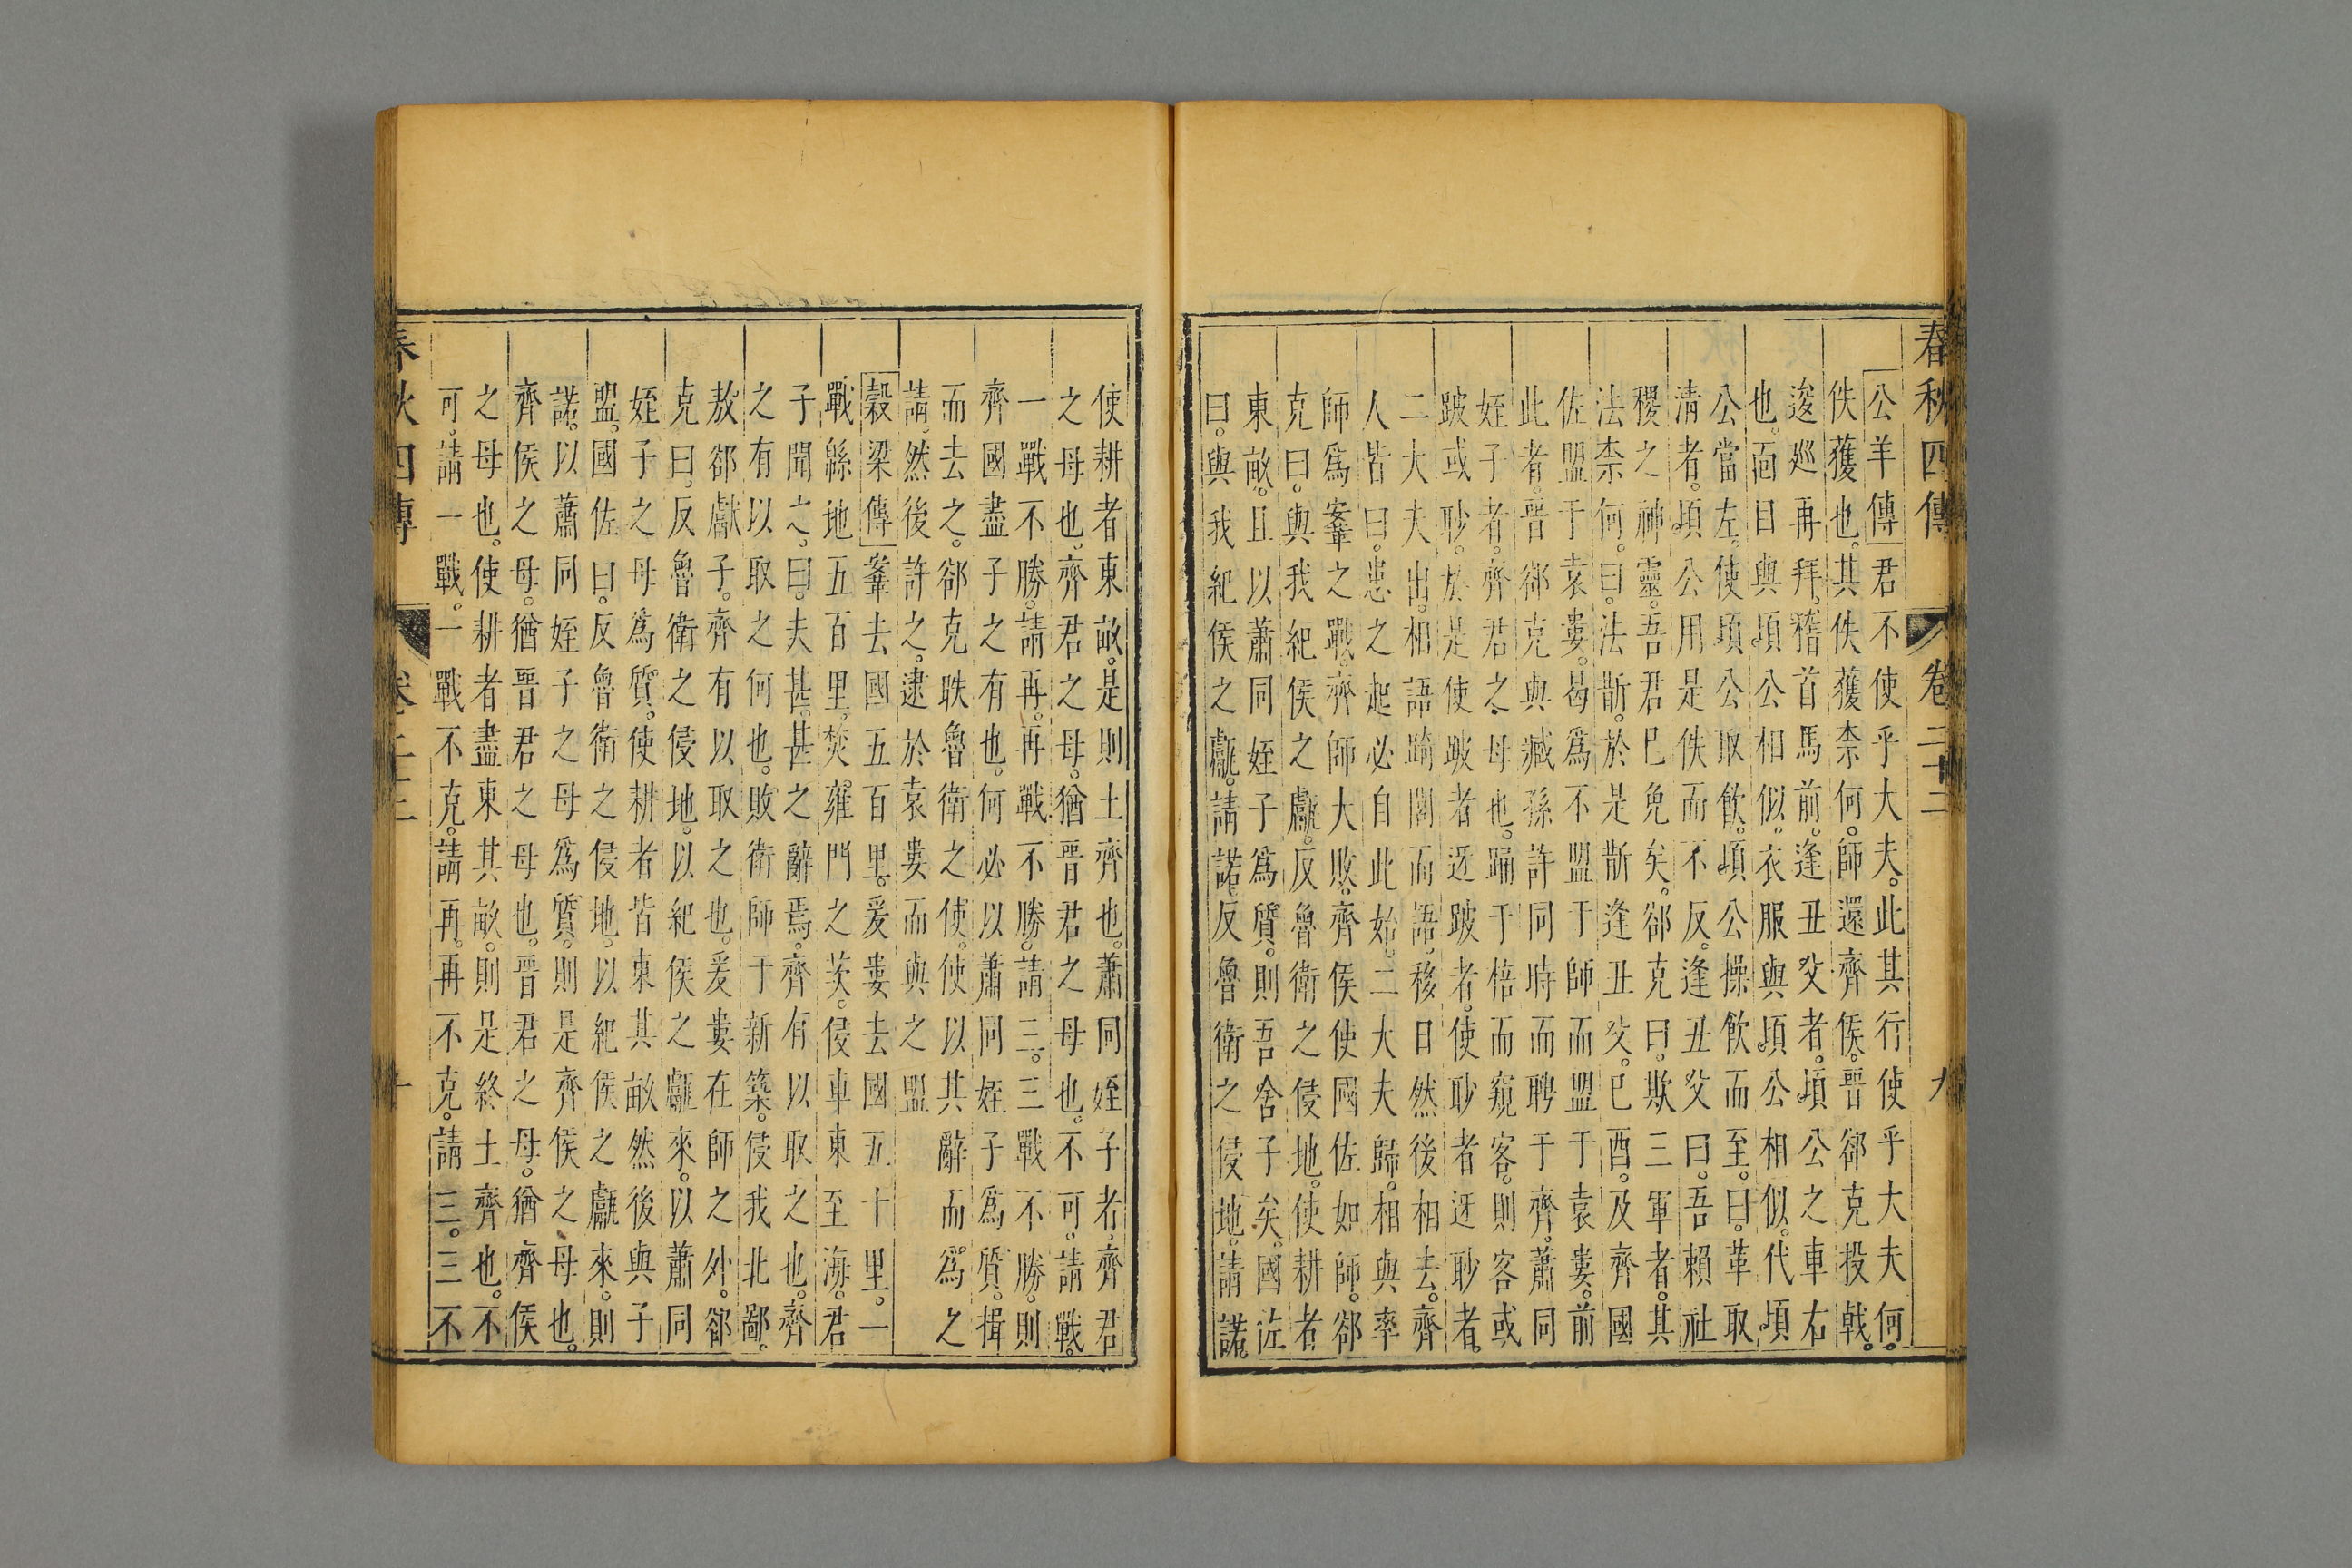 春秋四傳 卷二十二 九
公羊傳君不使乎大夫。此其行使乎大夫何。
佚獲也。其佚獲柰何。師還齊侯。晋郤克投戟。
逡巡再拜。稽首馬前。逢丑父者。頃公之車右
也。面目與頃公相似。衣服與頃公相似。代頃
公當左。使頃公取飲。頃公操飲而至。曰。革取
清者。頃公用是佚而不反。逢丑父曰。吾賴社
稷之神靈。吾君已免矣。郤克曰。欺三軍者。其
法柰何。曰。法斮。於是斮逢丑父。已酉。及齊國
佐盟于袁婁。曷爲不盟于師而盟于袁婁。前
此者。晋郤克與臧孫許同時而聘于齊。蕭同
姪子者。齊君之母也。踊于棓而窺客。則客或
跛或眇。於是使跛者迓跛者。使眇者迓眇者。
二大夫出。相語踦閭而語。移日然後相去。齊
人皆曰。患之起必自此始。二大夫歸。相與率
師爲鞌之戰。齊師大敗。齊侯使國佐如師。郤
克曰。與我紀侯之甗。反魯衛之侵地。使耕者
東畝。且以蕭同姪子爲質。則吾舍子矣。國佐
曰。與我紀侯之甗。請諾。反魯衛之侵地。請諾。
使耕者東畝。是則土齊也。蕭同姪子者。齊君
之母也。齊君之母。猶晋君之母也。不可。請戰。
一戰不勝。請再。再戰不勝。請三。三戰不勝。則
齊國盡子之有也。何必以蕭同姪子爲質。揖
而去之。郤克昳魯衛之使。使以其辭而爲之
請。然後許之。逮於袁婁而與之盟
穀梁傳鞌去國五百里。爰婁去國五十里。一
戰緜地五百里。焚雍門之茨。侵車東至海。君
子聞之。曰。夫甚。甚之辭焉。齊有以取之也。齊
之有以取之何也。敗衛師于新築。侵我北鄙。
敖郤獻子。齊有以取之也。爰婁在師之外。郤
克曰。反魯衛之侵地。以紀侯之甗來。以蕭同
姪子之母爲質。使耕者皆東其畝。然後與子
盟。國佐曰。反魯衛之侵地。以紀侯之甗來。則
諾。以蕭同姪子之母爲質。則是齊侯之母也。
齊侯之母。猶晋君之母也。晋君之母。猶齊侯
之母也。使耕者盡東其畝。則是終土齊也。不
可。請一戰。一戰不克。請再。再不克。請三。三不
春秋四傳 卷二十二 十